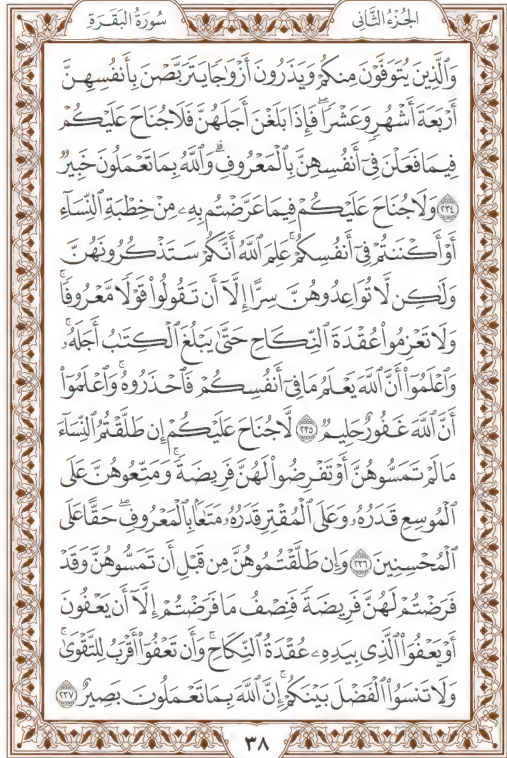 الجُزْءُ الثَّانِى
سُورَةُ البَقَرَةِ
وَٱلَّذِينَ يُتَوَفَّوْنَ مِنكُمْ وَيَذَرُونَ أَزْوَٰجًا يَتَرَبَّصْنَ بِأَنفُسِهِنَّ
أَرْبَعَةَ أَشْهُرٍ وَعَشْرًا ۖ فَإِذَا بَلَغْنَ أَجَلَهُنَّ فَلَا جُنَاحَ عَلَيْكُمْ
فِيمَا فَعَلْنَ فِىٓ أَنفُسِهِنَّ بِٱلْمَعْرُوفِ ۗ وَٱللَّهُ بِمَا تَعْمَلُونَ خَبِيرٌ
٢٣٤ وَلَا جُنَاحَ عَلَيْكُمْ فِيمَا عَرَّضْتُم بِهِۦ مِنْ خِطْبَةِ ٱلنِّسَآءِ
أَوْ أَكْنَنتُمْ فِىٓ أَنفُسِكُمْ ۚ عَلِمَ ٱللَّهُ أَنَّكُمْ سَتَذْكُرُونَهُنَّ
وَلَٰكِن لَّا تُوَاعِدُوهُنَّ سِرًّا إِلَّآ أَن تَقُولُوا۟ قَوْلًا مَّعْرُوفًا ۚ
وَلَا تَعْزِمُوا۟ عُقْدَةَ ٱلنِّكَاحِ حَتَّىٰ يَبْلُغَ ٱلْكِتَٰبُ أَجَلَهُۥ ۚ
وَٱعْلَمُوٓا۟ أَنَّ ٱللَّهَ يَعْلَمُ مَا فِىٓ أَنفُسِكُمْ فَٱحْذَرُوهُ ۚ وَٱعْلَمُوٓا۟
أَنَّ ٱللَّهَ غَفُورٌ حَلِيمٌ ٢٣٥ لَّا جُنَاحَ عَلَيْكُمْ إِن طَلَّقْتُمُ ٱلنِّسَآءَ
مَا لَمْ تَمَسُّوهُنَّ أَوْ تَفْرِضُوا۟ لَهُنَّ فَرِيضَةً ۚ وَمَتِّعُوهُنَّ عَلَى
ٱلْمُوسِعِ قَدَرُهُۥ وَعَلَى ٱلْمُقْتِرِ قَدَرُهُۥ مَتَٰعًۢا بِٱلْمَعْرُوفِ ۖ حَقًّا عَلَى
ٱلْمُحْسِنِينَ ٢٣٦ وَإِن طَلَّقْتُمُوهُنَّ مِن قَبْلِ أَن تَمَسُّوهُنَّ وَقَدْ
فَرَضْتُمْ لَهُنَّ فَرِيضَةً فَنِصْفُ مَا فَرَضْتُمْ إِلَّآ أَن يَعْفُونَ
أَوْ يَعْفُوَا۟ ٱلَّذِى بِيَدِهِۦ عُقْدَةُ ٱلنِّكَاحِ ۚ وَأَن تَعْفُوٓا۟ أَقْرَبُ لِلتَّقْوَىٰ ۚ
وَلَا تَنسَوُا۟ ٱلْفَضْلَ بَيْنَكُمْ ۚ إِنَّ ٱللَّهَ بِمَا تَعْمَلُونَ بَصِيرٌ ٢٣٧
٣٨